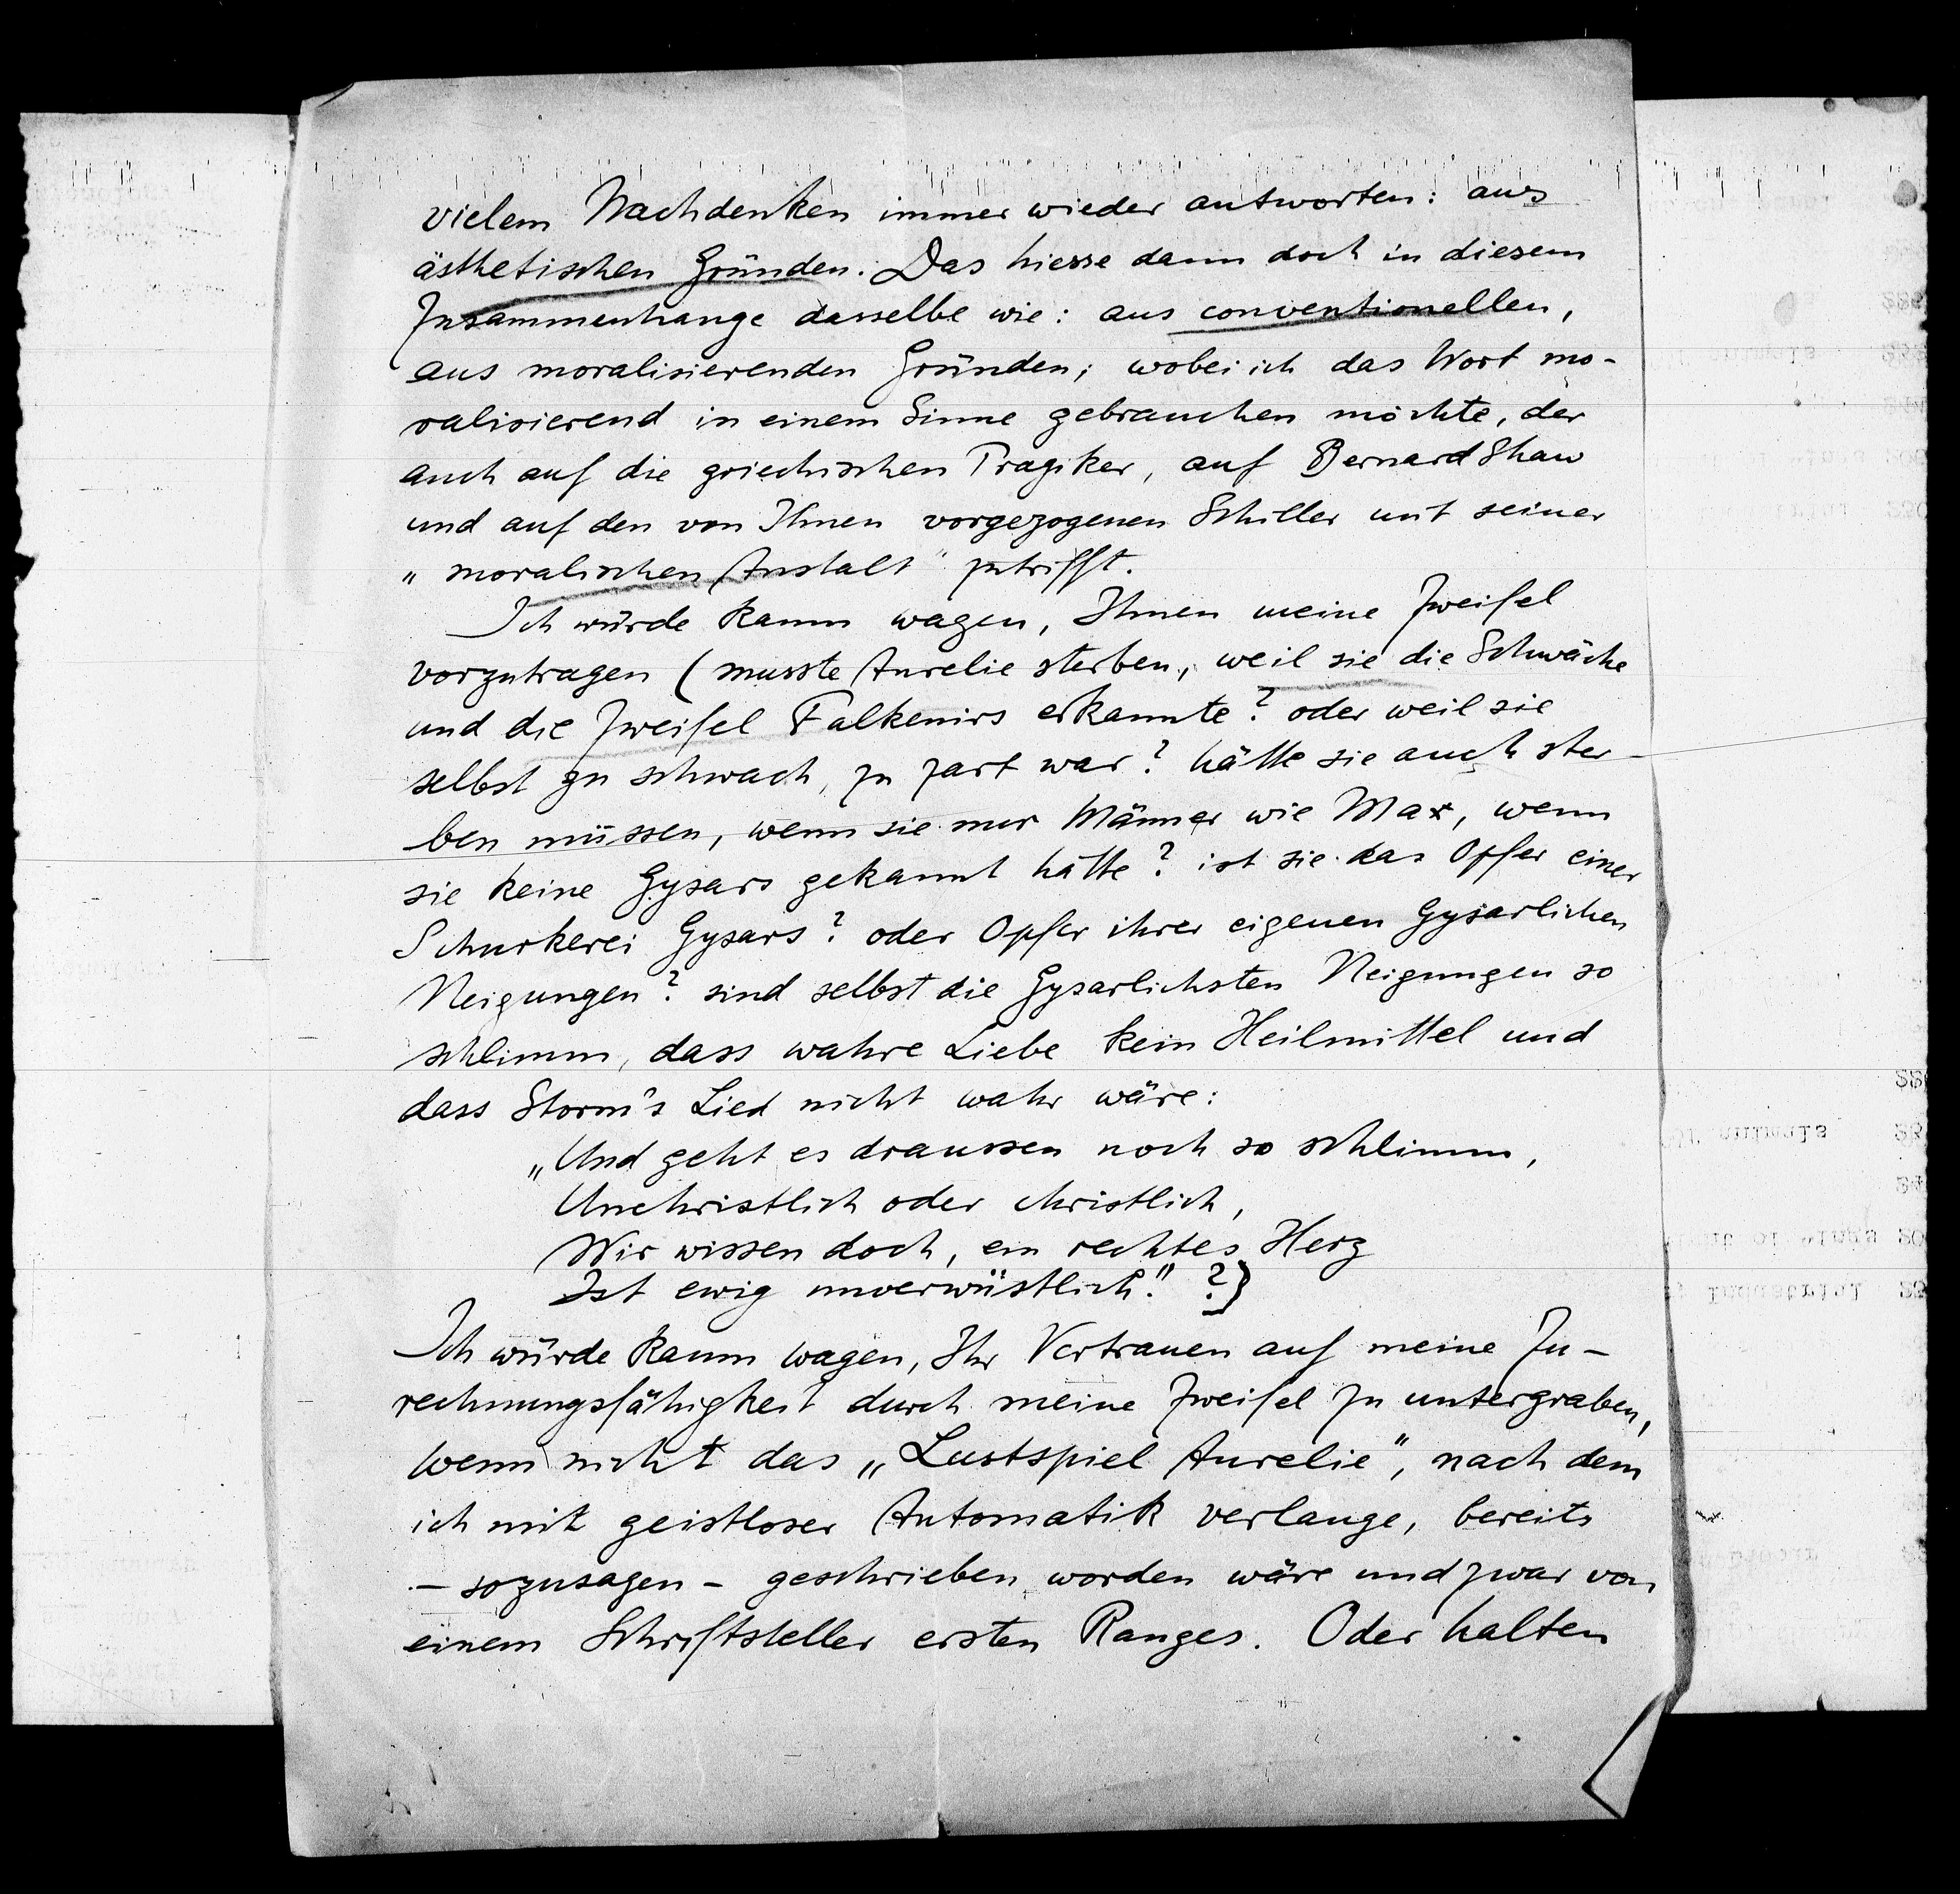 vielem Nachdenken immer wieder antworten: aus
ästhetischen Gründen. Das hiesse dann doch in diesem
Zusammenhange dasselbe wie: aus conventionellen,
aus moralisierenden Gründen; wobei ich das Wort mo-
ralisierend in einem Sinne gebrauchen möchte, der
auch auf die griechischen Tragiker, auf Bernard Shaw
und auf den von Ihnen vorgezogenen Schiller mit seiner
„moralischen Anstalt" zutrifft.
Ich würde kaum wagen, Ihnen meine Zweifel
vorzutragen (musste Aurelie sterben, weil sie die Schwäche
und die Zweifel Falkenirs erkannte? oder weil sie
selbst zu schwach, zu zart war? hätte sie auch ster-
ben müssen, wenn sie nur Männer wie Max, wenn
sie keine Gysars gekannt hätte? ist sie das Opfer einer
Schurkerei Gysars? oder Opfer ihrer eigenen Gysarlichen
Neigungen? sind selbst die Gysarlichsten Neigungen so
schlimm, dass wahre Liebe kein Heilmittel und
dass Storm's Lied nicht wahr wäre:
„Und geht es draussen noch so schlimm,
Unchristlich oder christlich,
Wir wissen doch, ein rechtes Herz
Ist ewig unverwüstlich." ?)
Ich würde kaum wagen, Ihr Vertrauen auf meine Zu-
rechnungsfähigkeit durch meine Zweifel zu untergraben,
wenn nicht das „Lustspiel Aurelie", nach dem
ich mit geistloser Automatik verlange, bereits
- sozusagen - geschrieben worden wäre und zwar von
einem Schriftsteller ersten Ranges. Oder halten